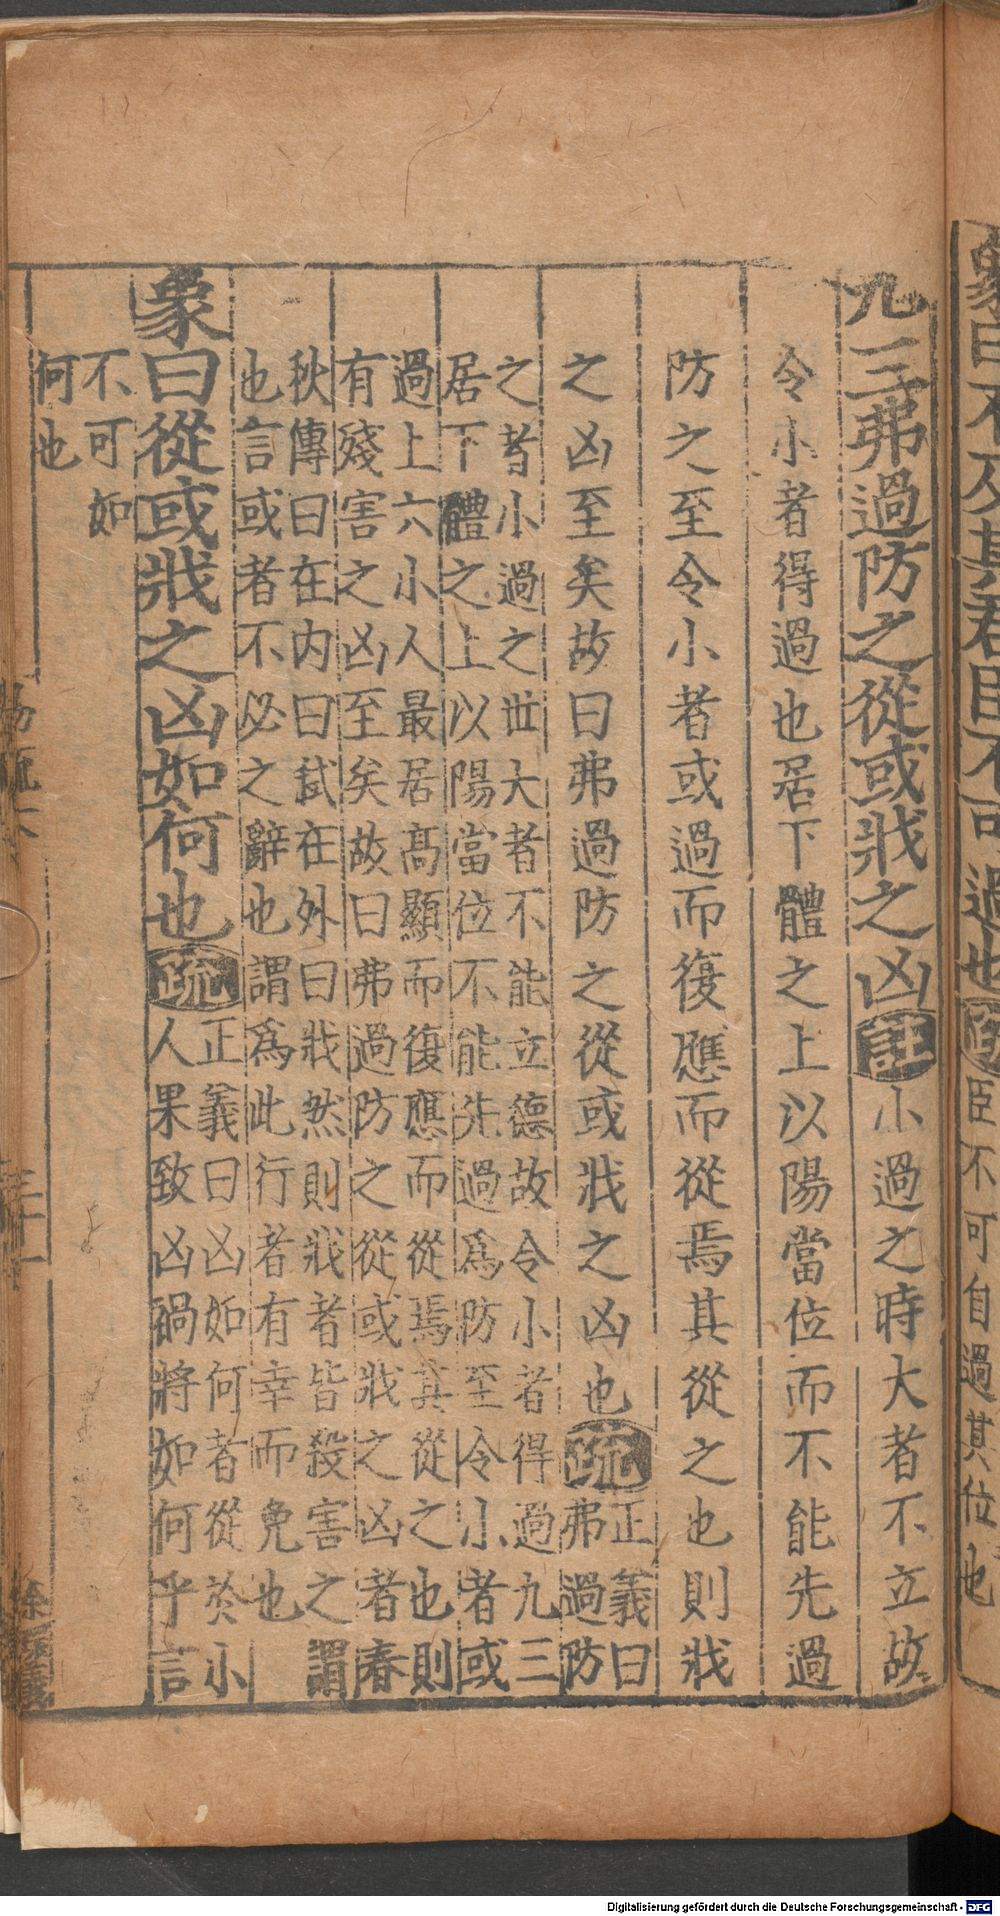 象曰不及其君臣不可過也注臣不可自過其位也
九三弗過防之從或戕之凶注小過之時大者不立故
令小者得過也居下體之上以陽當位而不能先過
防之至令小者或過而復應而從焉其從之也則戕
之凶至矣故曰弗過防之從或戕之凶也疏正義曰
弗過防
之者小過之世大者不能立德故令小者得過九三
居下體之上以陽當位不能先過爲防至令小者或
過上六小人最居高顯而復應而從焉其從之也則
有殘害之凶至矣故曰弗過防之從或戕之凶者春
秋傳曰在内曰弑在外曰戕然則戕者皆殺害之謂
也言或者不必之辭也謂爲此行者有幸而免也
象曰從或戕之凶如何也疏正義曰凶如何者從於小
人果致凶禍將如何乎言
不可如
何也
易疏六
三十一
Digitalisierung gefördert durch die Deutsche Forschungsgemeinschaft - DFG